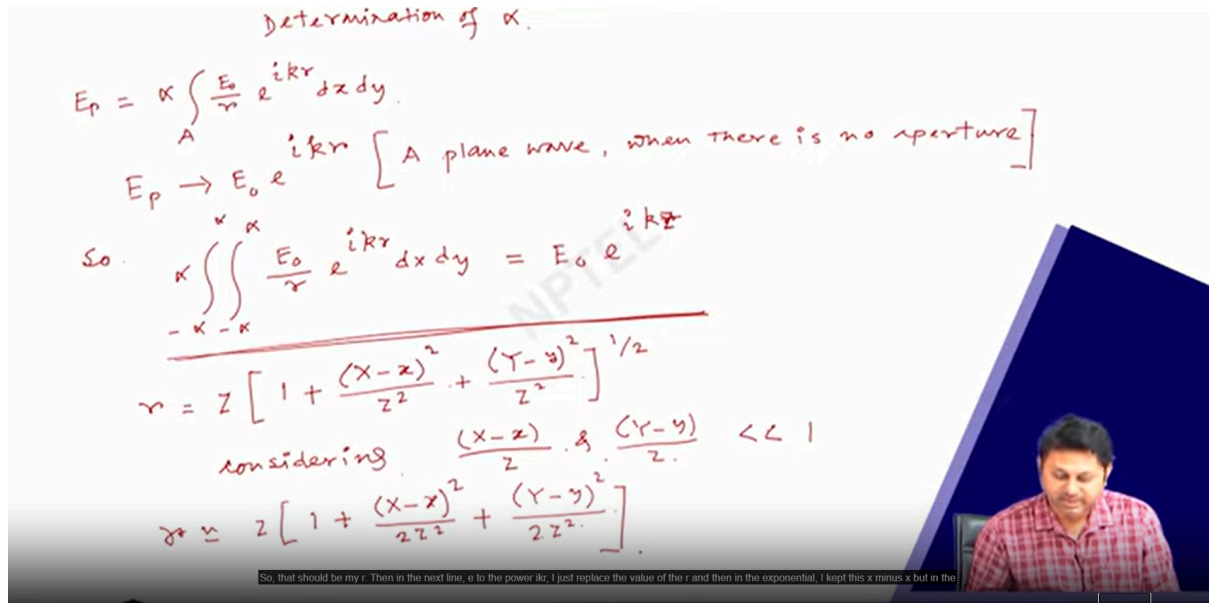 Determination of α.
E_p = α ∫_A E_0/r e^{ikr} dx dy.
E_p → E_0 e^{ikr} [A plane wave, when there is no aperture]
So α ∫_{-α}^{α} ∫_{-α}^{α} E_0/r e^{ikr} dx dy = E_0 e^{ikz}
r = Z [1 + (X-x)^2/Z^2 + (Y-y)^2/Z^2]^{1/2}
considering (X-x)/Z & (Y-y)/Z. << 1
r ≃ Z [1 + (X-x)^2/2Z^2 + (Y-y)^2/2Z^2].
NPTEL
So, that should be my r. Then in the next line, e to the power ikr, I just replace the value of the r and then in the exponential, I kept this x minus x but in the